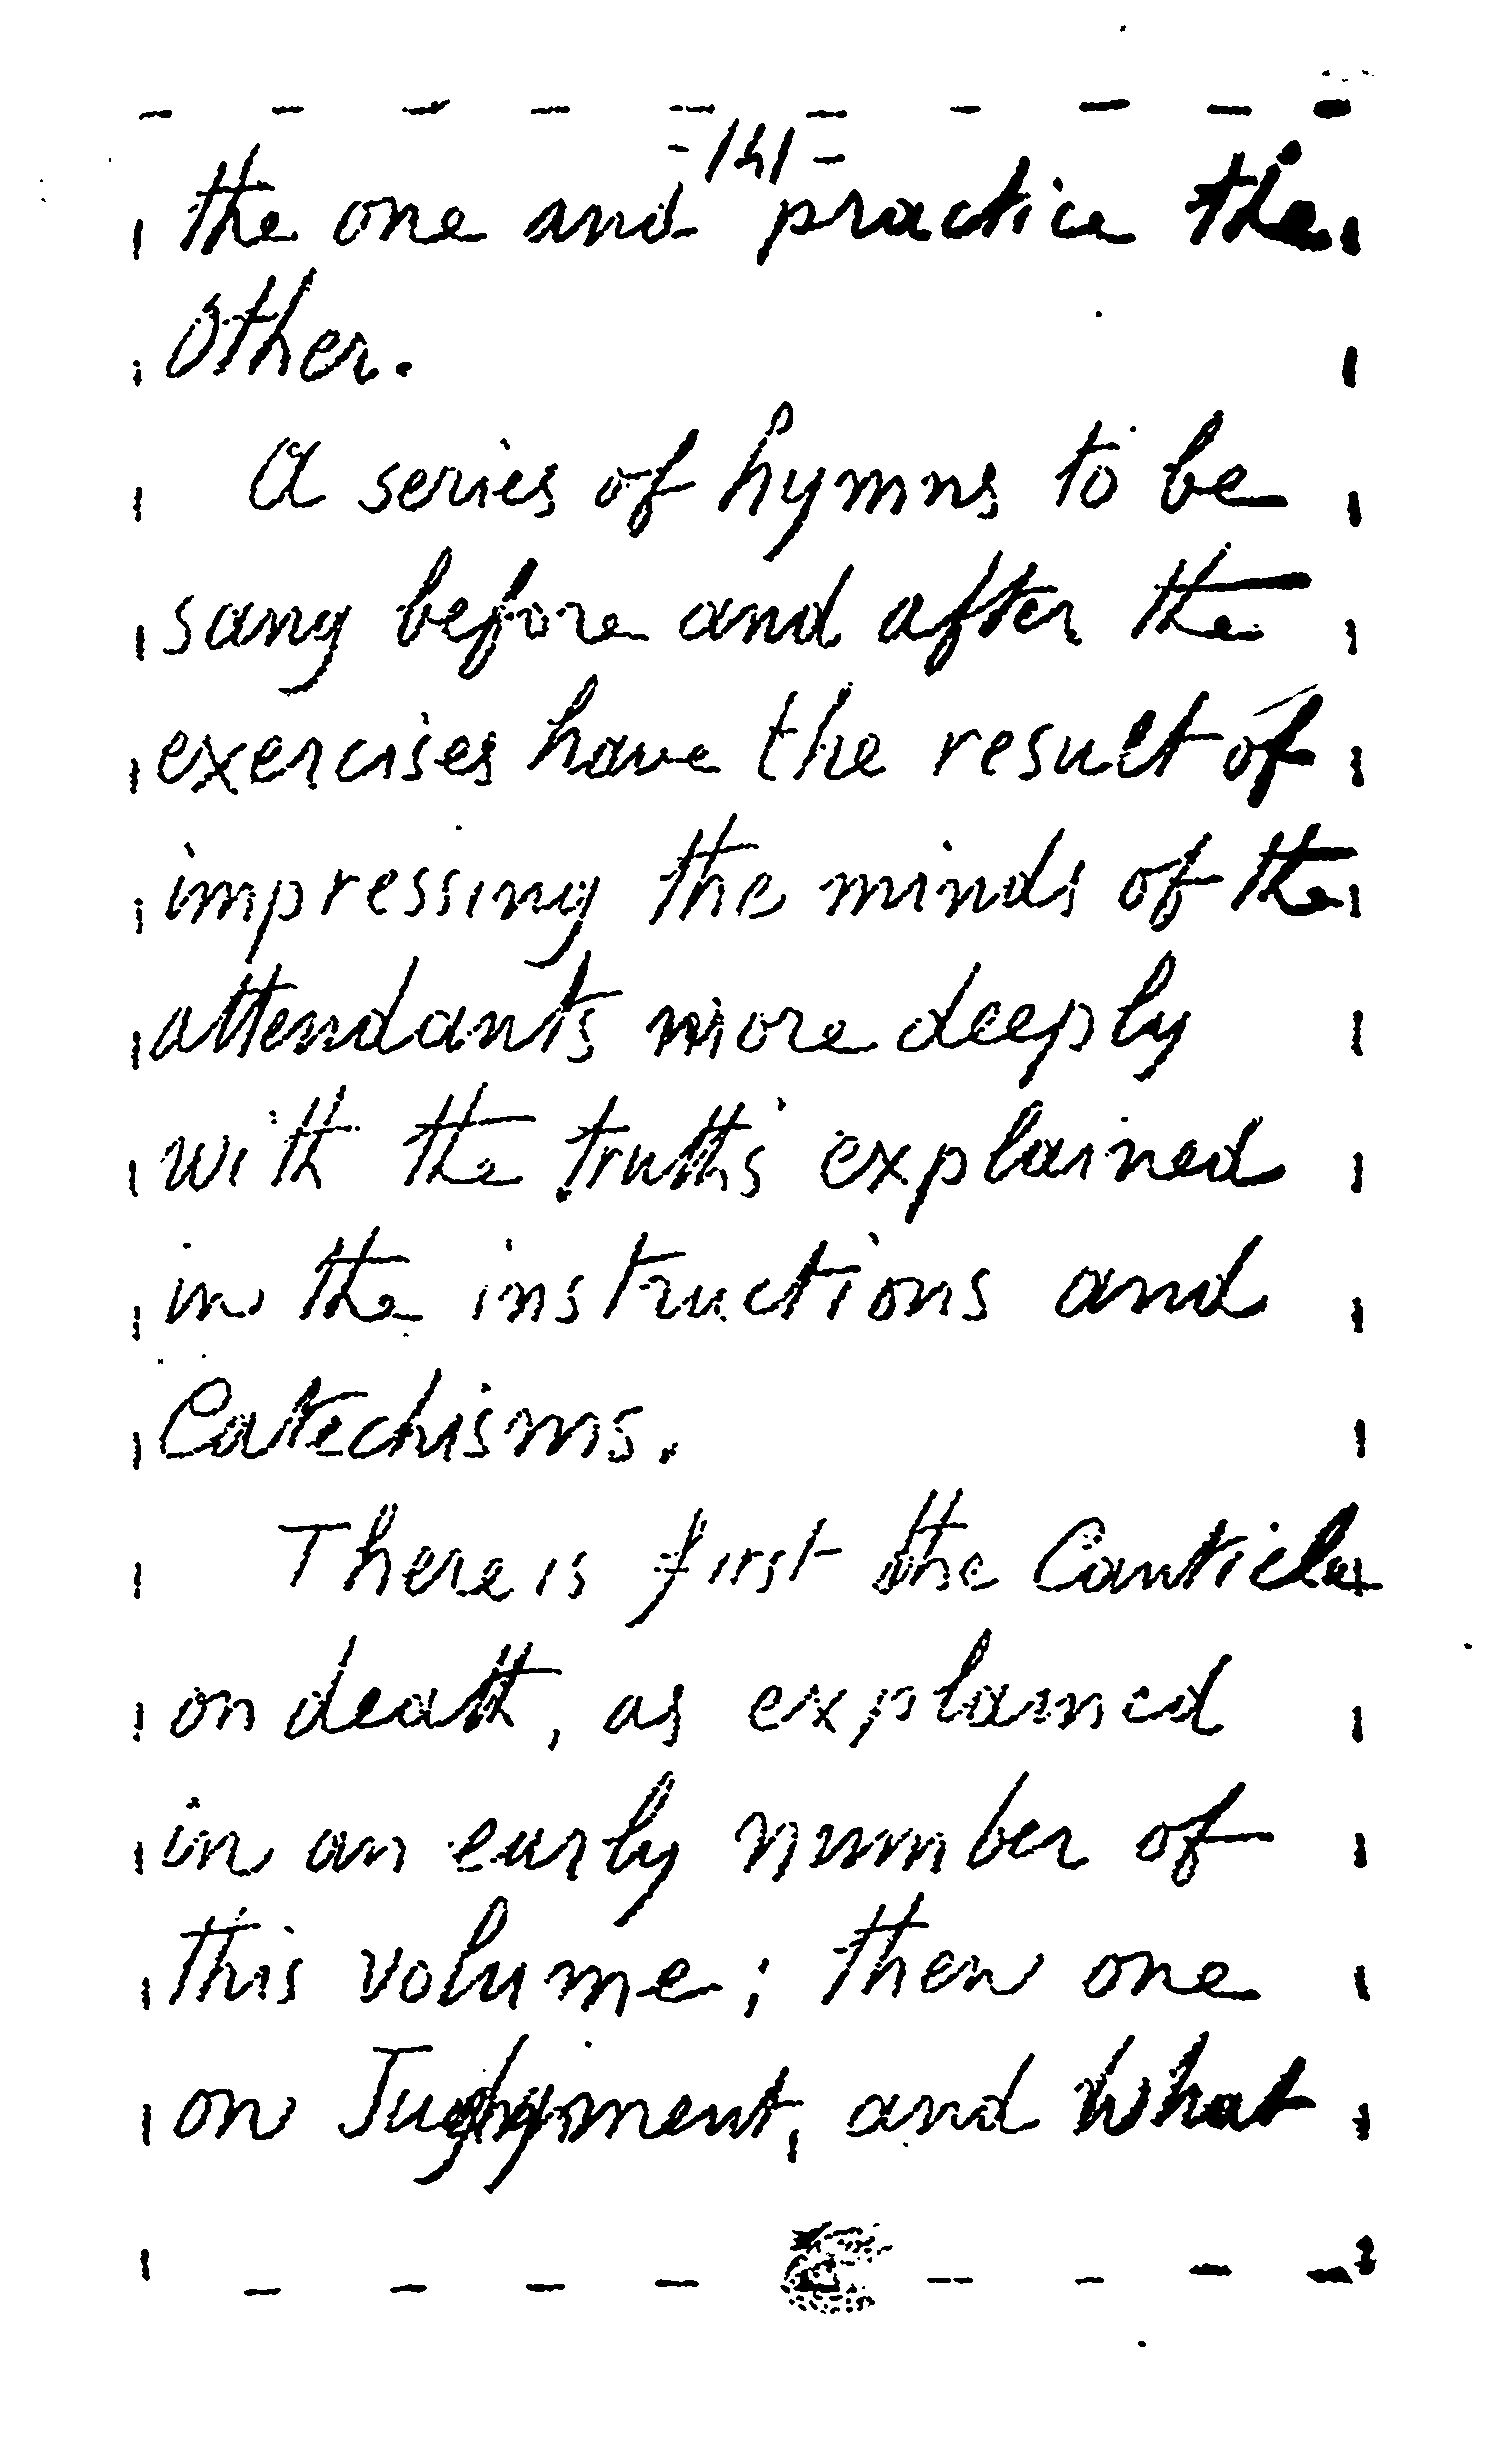 -141-
the one and practice the
other.
A series of hymns to be
sang before and after the
exercises have the result of
impressing the minds of the
attendants more deeply
with the truths explained
in the instructions and
Catechisms.
There is first the Canticle
on death, as explained
in an early number of
this volume; then one
on Judgment, and what